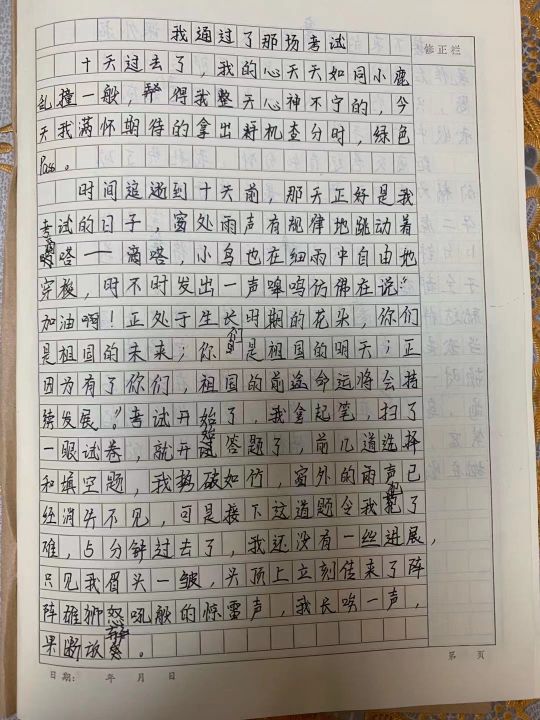 我通过了那场考试
修正栏
十天过去了，我的心天天如同小鹿
乱撞一般，弄得我整天心神不宁的，今
天我满怀期待的拿出手机查分时，绿色
Pass。
时间追溯到十天前，那天正好是我
考试的日子，窗处雨声有规律地跳动着
嘀嗒一滴嗒，小鸟也在细雨中自由地
穿梭，时不时发出一声嗥鸣仿佛在说："
加油啊！正处于生长时期的花朵，你们
是祖国的未来；你们是祖国的明天；正
因为有了你们，祖国的前途命运将会持
续发展。"考试开始了，我拿起笔，扫了
一眼试卷，就开始答题了，前几道选择
和填空题，我势破如竹，窗外的雨声已
经消失不见，可是接下这道题令我犯了
难，5分钟过去了，我还没有一丝进展，
只见我眉头一皱，头顶上立刻传来了阵
阵雄狮怒吼般的惊雷声，我长唉一声，
果断放弃。
日期： 年 月 日
第 页